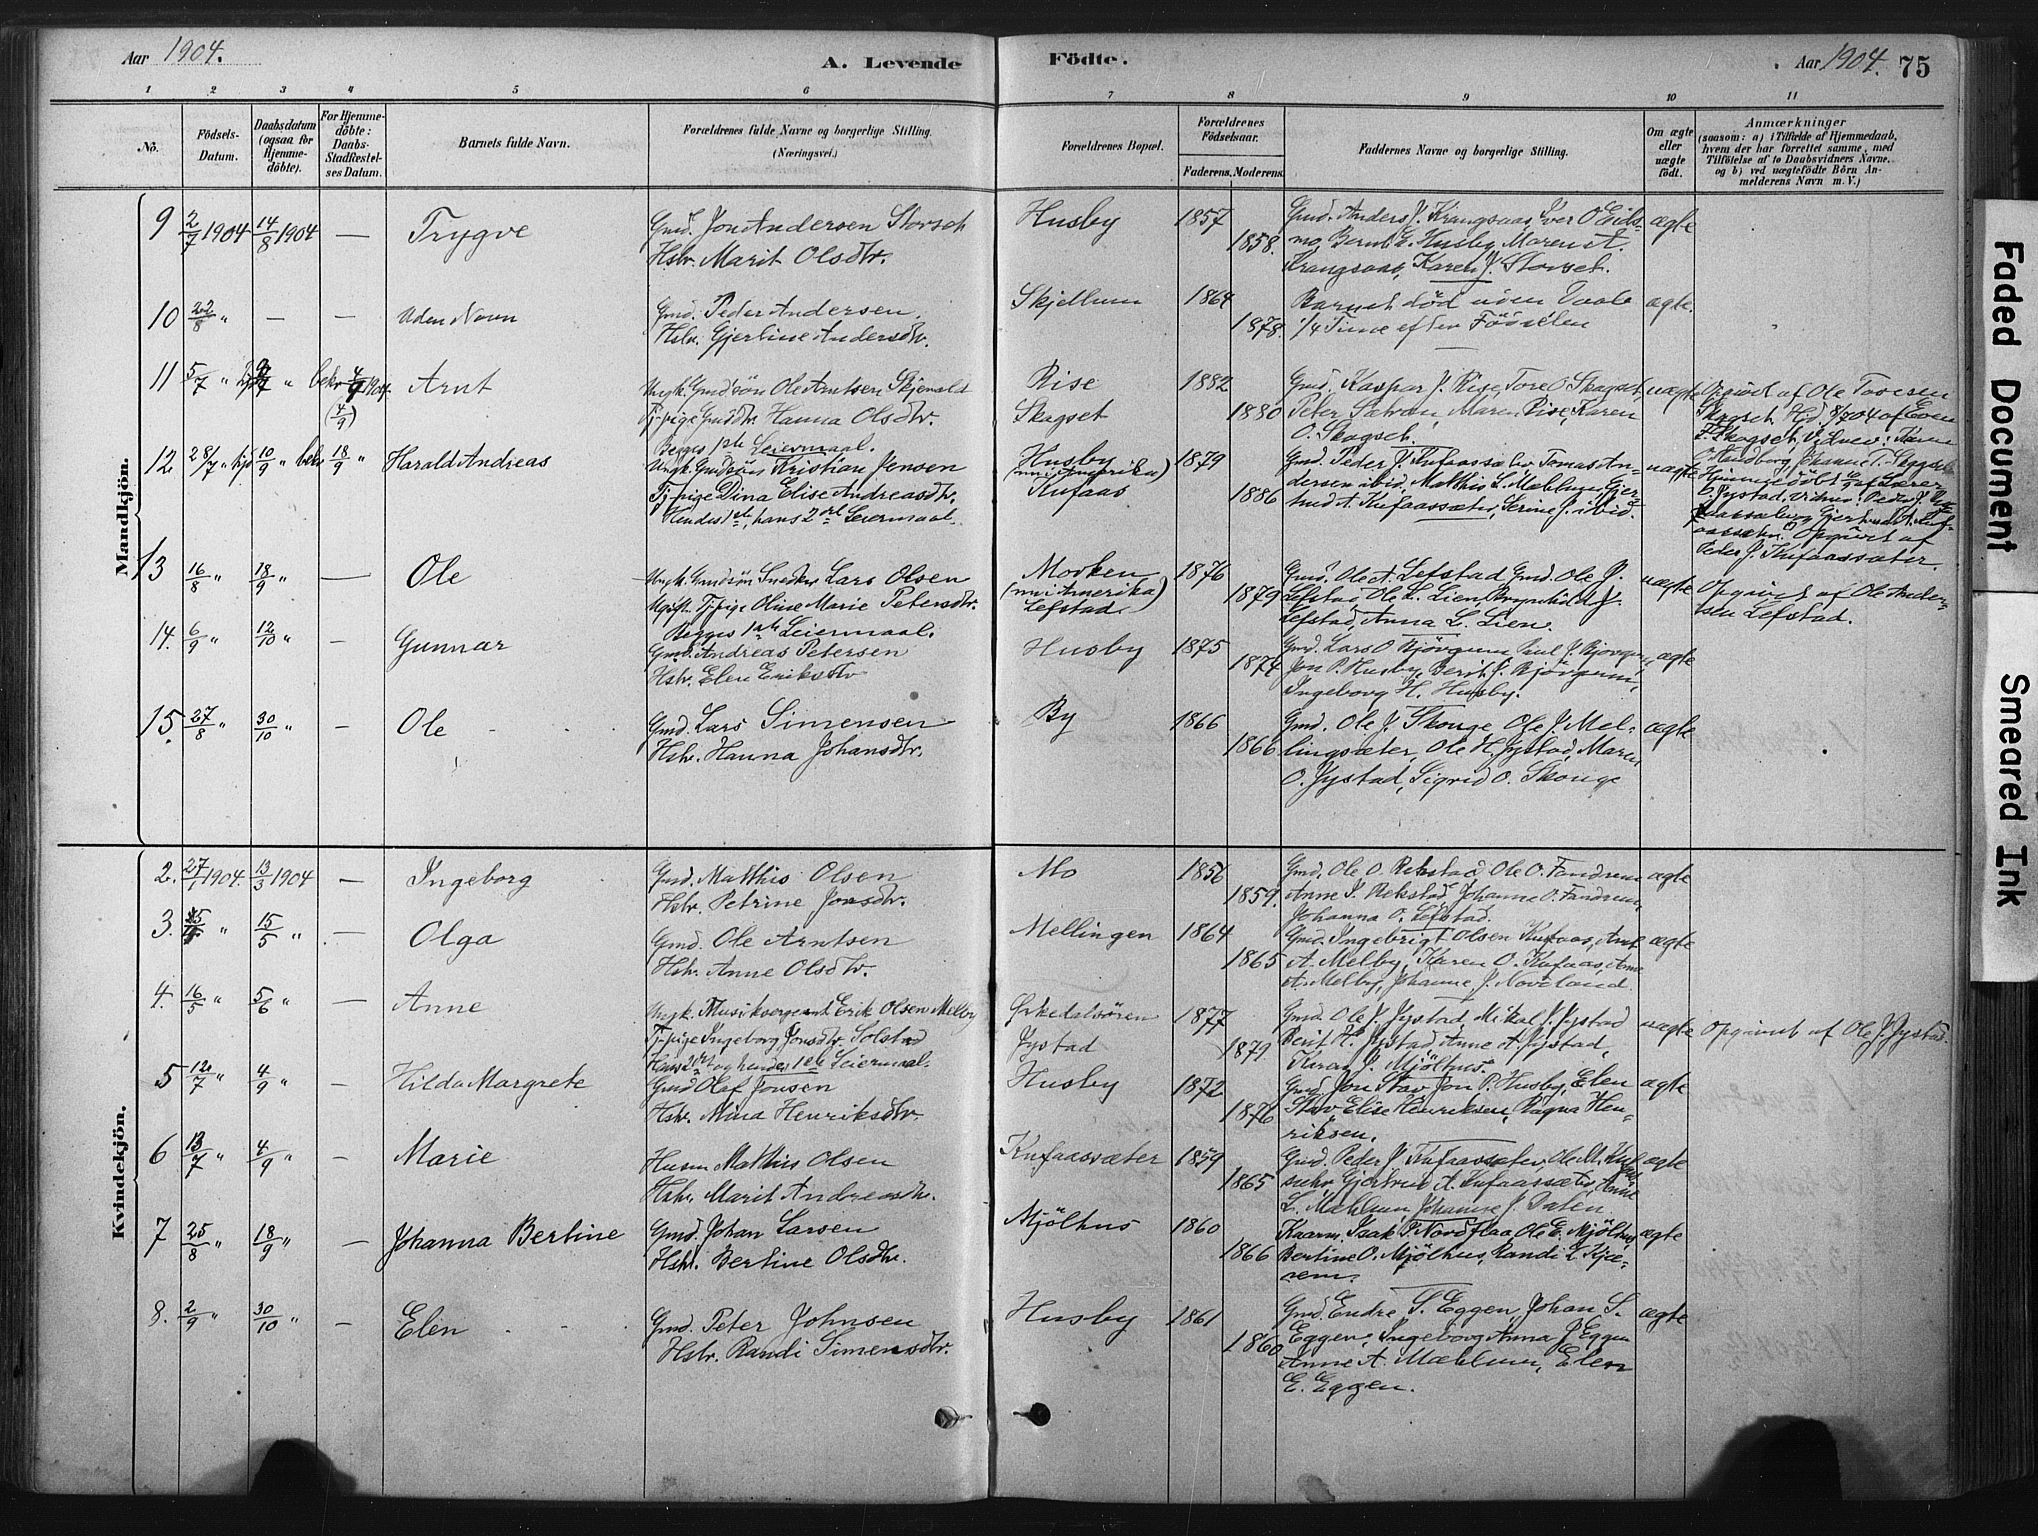 Aar 1904.
A. Levende Födte.
Aar 1904. 75
1 2 3 4 5 6 7 8 9 10 11
No.
Födsels-
Datum.
Daabsdatum
(ogsaa for
Hjemme-
döbte).
For Hjemme-
döbte:
Daabs-
Stadfæstel-
ses Datum.
Barnets fulde Navn.
Forældrenes fulde Navne og borgerlige Stilling.
(Næringsvei.)
Forældrenes Bopæl.
Forældrenes
Födselsaar.
Faderens. Moderens.
Faddernes Navne og borgerlige Stilling.
Om ægte
eller
uægte
födt.
Anmærkninger
(saasom: a) i Tilfælde af Hjemmedaab,
hvem der har forrettet samme, med
Tilföielse af to Daabsvidners Navne.
og b) ved uægtefödte Börn An-
melderens Navn m. V.)
Mandkjön.
9 2/7 1904 14/8 1904 — Trygve
Gmd. Jon Andersen Storset
Hstr. Marit Olsdtr.
Husby 1857
1858.
Gmd. Anders J. Krangsaas, Iver O. Eids-
mo, Bernt E. Husby, Maren A.
Krangsaas, Karen J. Storset.
ægte
10 22/8 " — — Uden Navn
Gmd. Peder Andersen.
Hstr. Gjertine Andersdtr.
Skjellum 1864
1878.
Barnet död uden Daab
1/4 Time efter Födselen
ægte.
11 5/7 " " bekr 4/9 1904 Arnt
(4/9)
Ungk. Gmdsön Ole Arntsen Skjenald
Tj. pige Gmddtr. Hanna Olsdtr.
Begges 1ste Leiermaal.
Rise
Skagset
1882
1880
Gmd. Kaspar J. Rise, Tore O. Skagset,
Peter Sætran, Maren Rise, Karen
O. Skagset.
uægte
Opgivet af Ole Toresen
Skagset. Hjd. 9/7 04 af Even
Skagset. Vidner: Karen
O. Johanne T. Skagset
12 28/7 " hjd 10/9 " bekr 18/9 " Harald Andreas
Ungk. Gmdsön Kristian Jensen
Tj. pige Dina Elise Andreasdtr.
Hendes 1ste, hans 2det Leiermaal.
Husby
(nu i Amerika)
Kufaas
1879
1886
Gmd. Peder J. Kufaassæter, Tomas An-
dersen ibid, Matthis L. Mæhlum, Gjer-
trud A. Kufaassæter, Serine J. ibid.
uægte
Hjemmedöbt 10/9 af Lærer
Jystad. Vidner: Peder J. Kuf-
aassæter og Gjertrud A. Kuf-
aassæter. Opgivet af
Peder J. Kufaassæter.
13 16/8 " 18/9 " — Ole
Ungk. Gmdsön Snedker Lars Olsen
Ugift Tj. pige Oline Marie Petersdtr.
Begges 1ste Leiermaal.
Morken
(nu i Amerika)
Lefstad.
1876
1879
Gmd. Ole A. Lefstad, Gmd. Ole J.
Lefstad, Ole L. Lien, Brynhild J.
Lefstad, Anna L. Lien.
uægte
Opgivet af Ole Ander-
sen Lefstad.
14. 6/9 " 12/10 " — Gunnar
Gmd. Andreas Petersen
Hstr. Elen Eriksdtr.
Husby 1875
1874
Gmd. Lars O. Björgum, Paul J. Björgum,
Jon P. Husby, Berit J. Björgum,
Ingeborg H. Husby.
ægte
15. 27/8 " 30/10 " — Ole
Gmd. Lars Simensen
Hstr. Hanna Johansdtr.
By 1866
1866
Gmd. Ole J. Skouge, Ole J. Mel-
lingsæter, Ole H. Jystad, Maren
O. Jystad, Sigrid O. Skouge
ægte
Kvindekjön.
2. 27/1 1904. 13/3 1904 — Ingeborg
Gmd. Matthis Olsen
Hstr. Petrine Jonsdtr.
Mo 1856
1859.
Gmd. Ole O. Rekstad, Ole O. Fandrem
Anne I. Rekstad, Johanne O. Fandrem,
Johanna O. Lefstad.
ægte
3. " 15/5 " — Olga
Gmd. Ole Arntsen
Hstr. Anne Olsdtr.
Mellingen 1864
1865
Gmd. Ingebrigt Olsen Kufaas, Arnt
A. Melby, Karen O. Kufaas, Anne
A. Melby, Johanne J. Noveland.
ægte
4. 16/5 " 5/6 " — Anne
Ungk. Musiksergeant Erik Olsen Melby
Tj. pige Ingeborg Jonsdtr. Solstad
Hans 2det og hendes 1ste Leiermaal.
Örkedalsören
Jystad
1877
1879
Gmd. Ole J. Jystad, Mikal J. Jystad
Berit H. Jystad, Anne A. Jystad,
Karen J. Mjölhus.
uægte
Opgivet af Ole J. Jystad.
5 12/7 " 4/9 " — Hilda Margrete
Gmd. Olaf Jonsen
Hstr. Mina Henriksdtr.
Husby 1872
1876
Gmd. Jon Stav, Jon P. Husby, Elen
Stav, Elise Henriksen, Ragna Hen-
riksen.
ægte
6 13/7 " 4/9 " — Marie
Husm. Matthis Olsen
Hstr. Marit Andreasdtr.
Kufaassæter 1859
1865
Gmd. Peder J. Kufaassæter, Ole M. Kufaas-
sæter, Gjertrud A. Kufaassæter, Anne
L. Mæhlum, Johanne J. Dalen.
ægte
7 25/8 " 18/9 " — Johanna Bertine
Gmd. Johan Larsen
Hstr. Bertine Olsdtr.
Mjölhus 1860
1866
Kaarm. Isak P. Nordflaa, Ole E. Mjölhus,
Bertine O. Mjölhus, Randi L. Kjæ-
rem.
ægte
8. 2/9 " 30/10 " — Elen
Gmd. Peter Johnsen
Hstr. Randi Simensdtr.
Husby 1861
1860
Gmd. Endre S. Eggen, Johan S.
Eggen, Ingeborg Anna J. Eggen
Anne A. Mæhlum, Elen
E. Eggen.
ægte
Faded Document
Smeared Ink